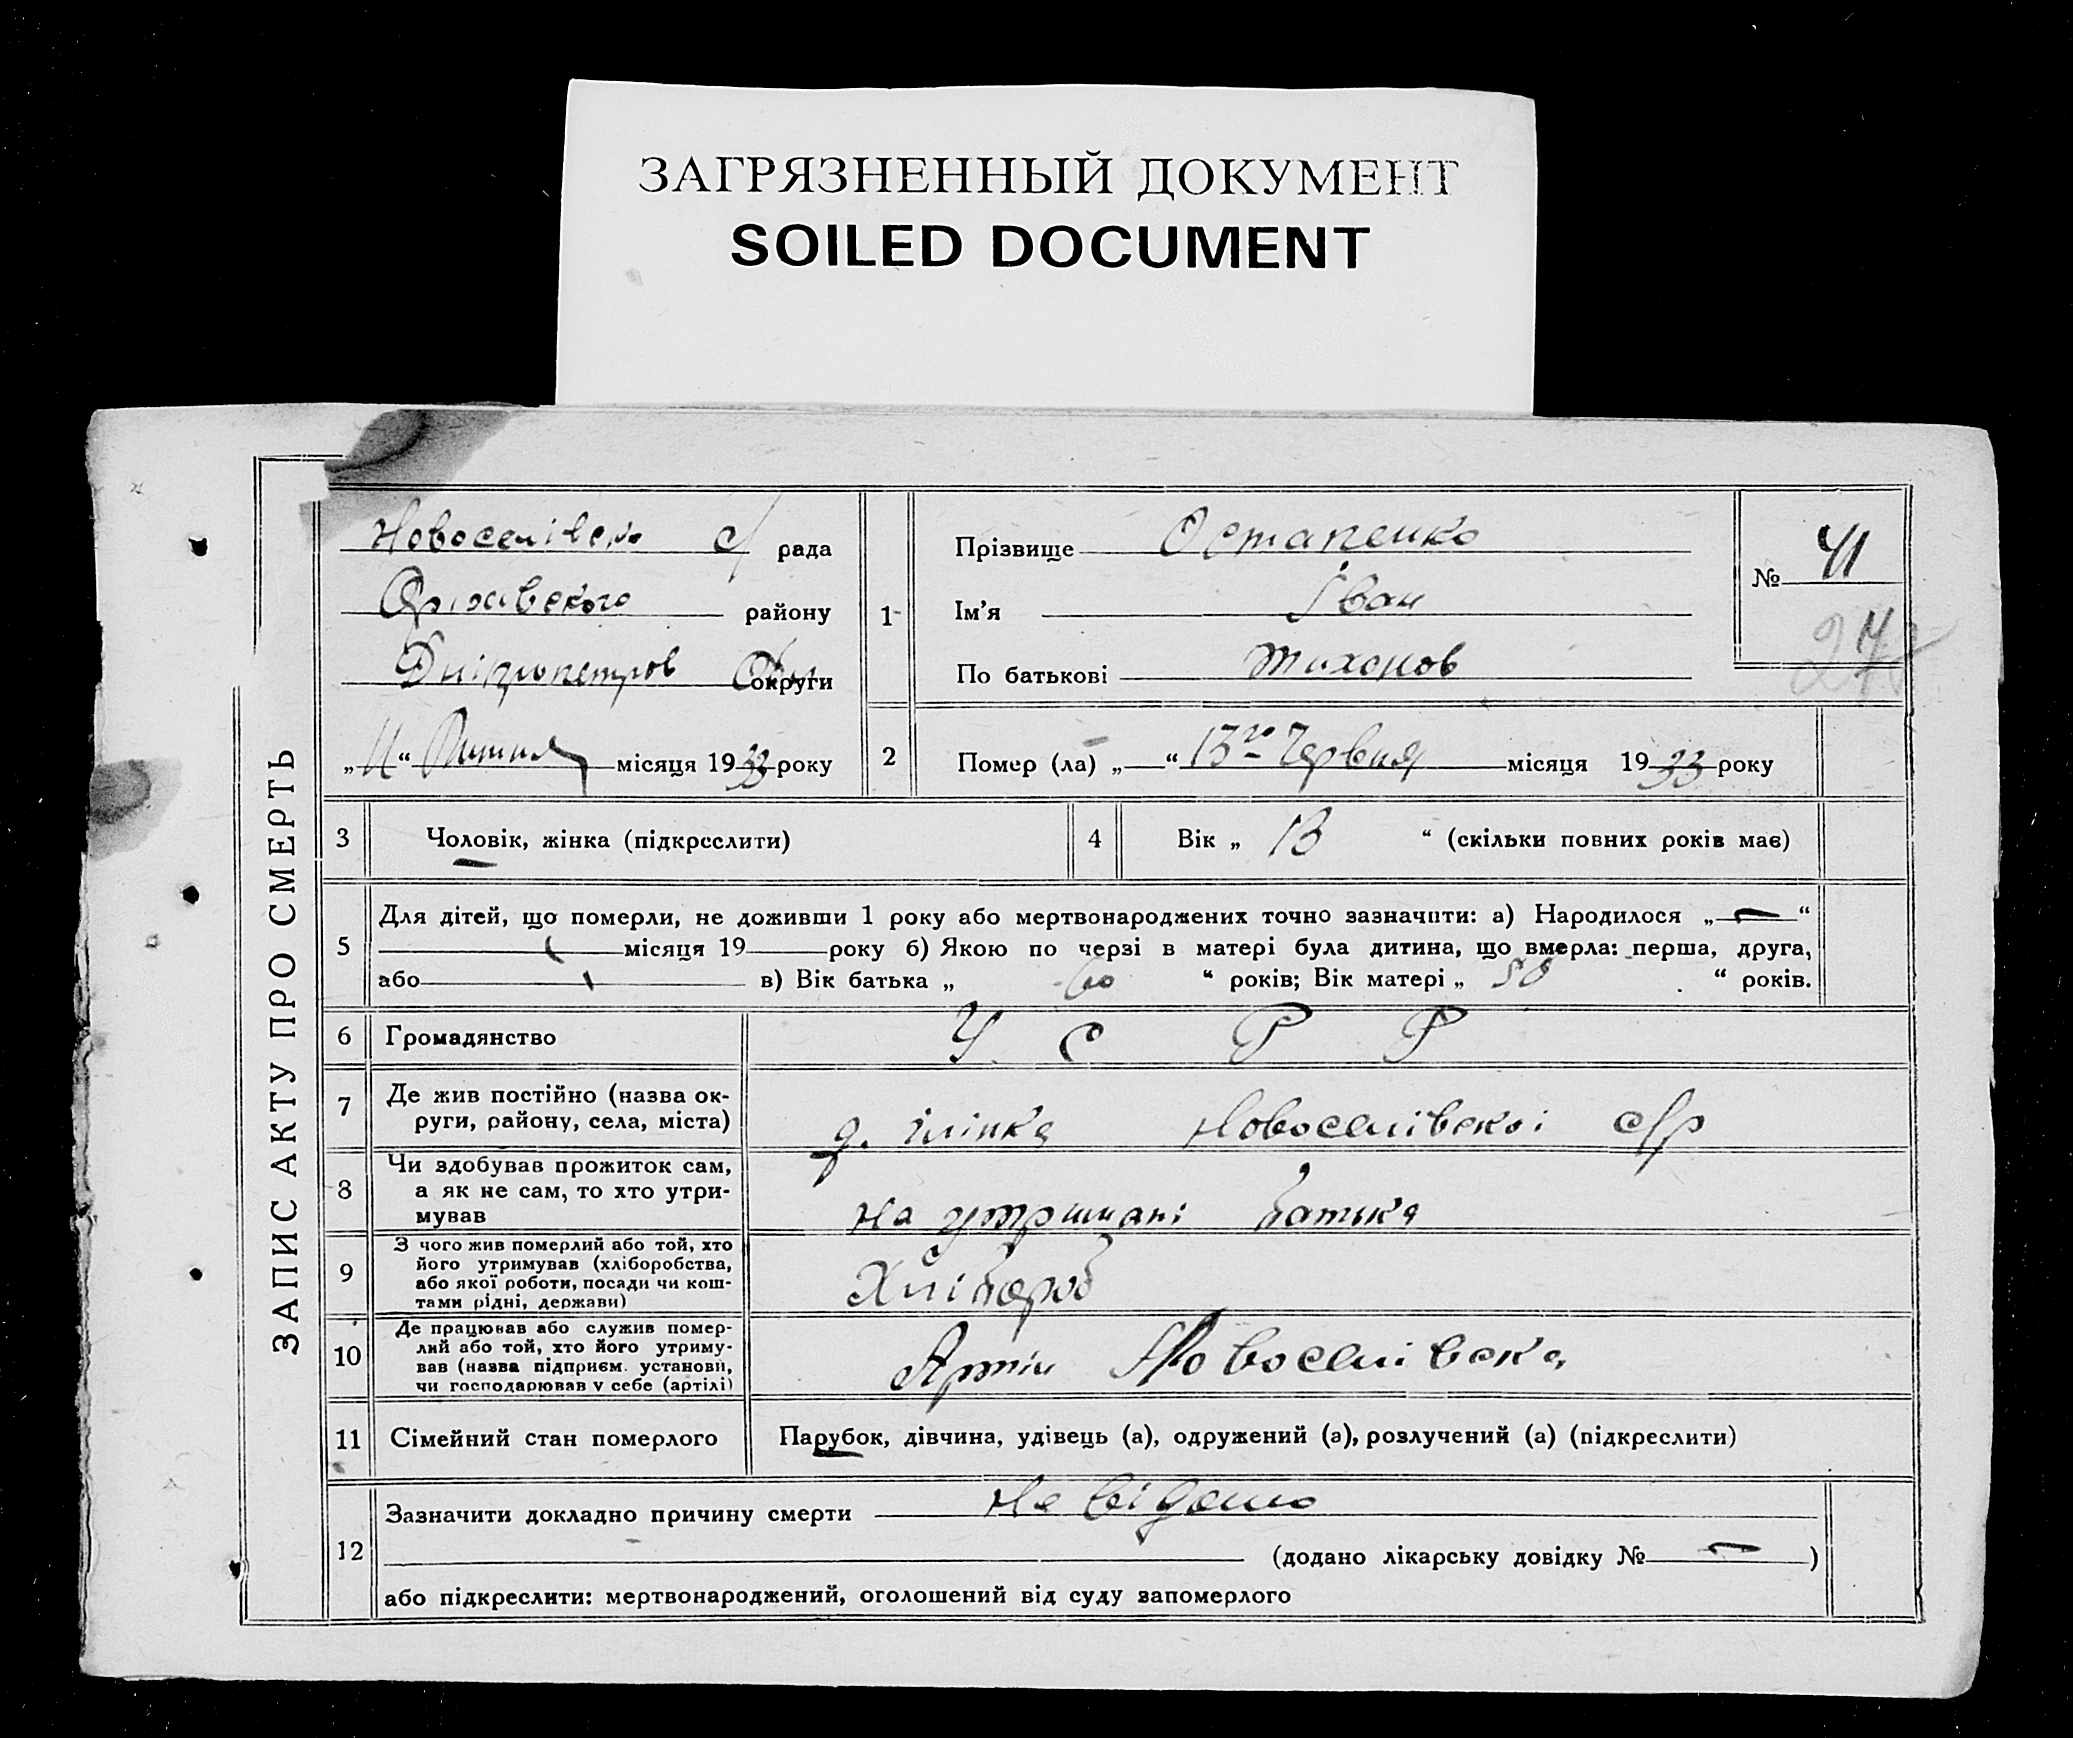 ЗАГРЯЗНЕННЫЙ ДОКУМЕНТ
SOILED DOCUMENT
ЗАПИС АКТУ ПРО СМЕРТЬ
Новоселівська с/ рада
району
Дніпропетров Обл округи
„11“ Липня місяця 1933 року
1
Прізвище Остапенко
Ім’я Іван
По батькові Тихонов
№ 41
2
Помер (ла) „ “ 13го Червня місяця 1933 року
3
Чоловік, жінка (підкреслити)
4
Вік „ 13 “ (скільки повних років має)
5
Для дітей, що померли, не доживши 1 року або мертвонароджених точно зазначити: а) Народилося „—“
місяця 19 року б) Якою по черзі в матері була дитина, що вмерла: перша, друга,
або в) Вік батька „ 60 “ років; Вік матері „ 58 “ років.
6
Громадянство
У С Р Р
7
Де жив постійно (назва ок-
руги, району, села, міста)
Новоселівської с/р
8
Чи здобував прожиток сам,
а як не сам, то хто утри-
мував
на утримані батька
9
З чого жив померлий або той, хто
його утримував (хліборобства,
або якої роботи, посади чи кош-
тами рідні, держави)
Хлібороб
10
Де працював або служив помер-
лий або той, хто його утриму-
вав (назва підприєм. установи,
чи господарював у себе (артілі)
Артіль Новоселівська
11
Сімейний стан померлого
Парубок, дівчина, удівець (а), одружений (а), розлучений (а) (підкреслити)
12
Зазначити докладно причину смерти Не відомо
(додано лікарську довідку № — )
або підкреслити: мертвонароджений, оголошений від суду запомерлого